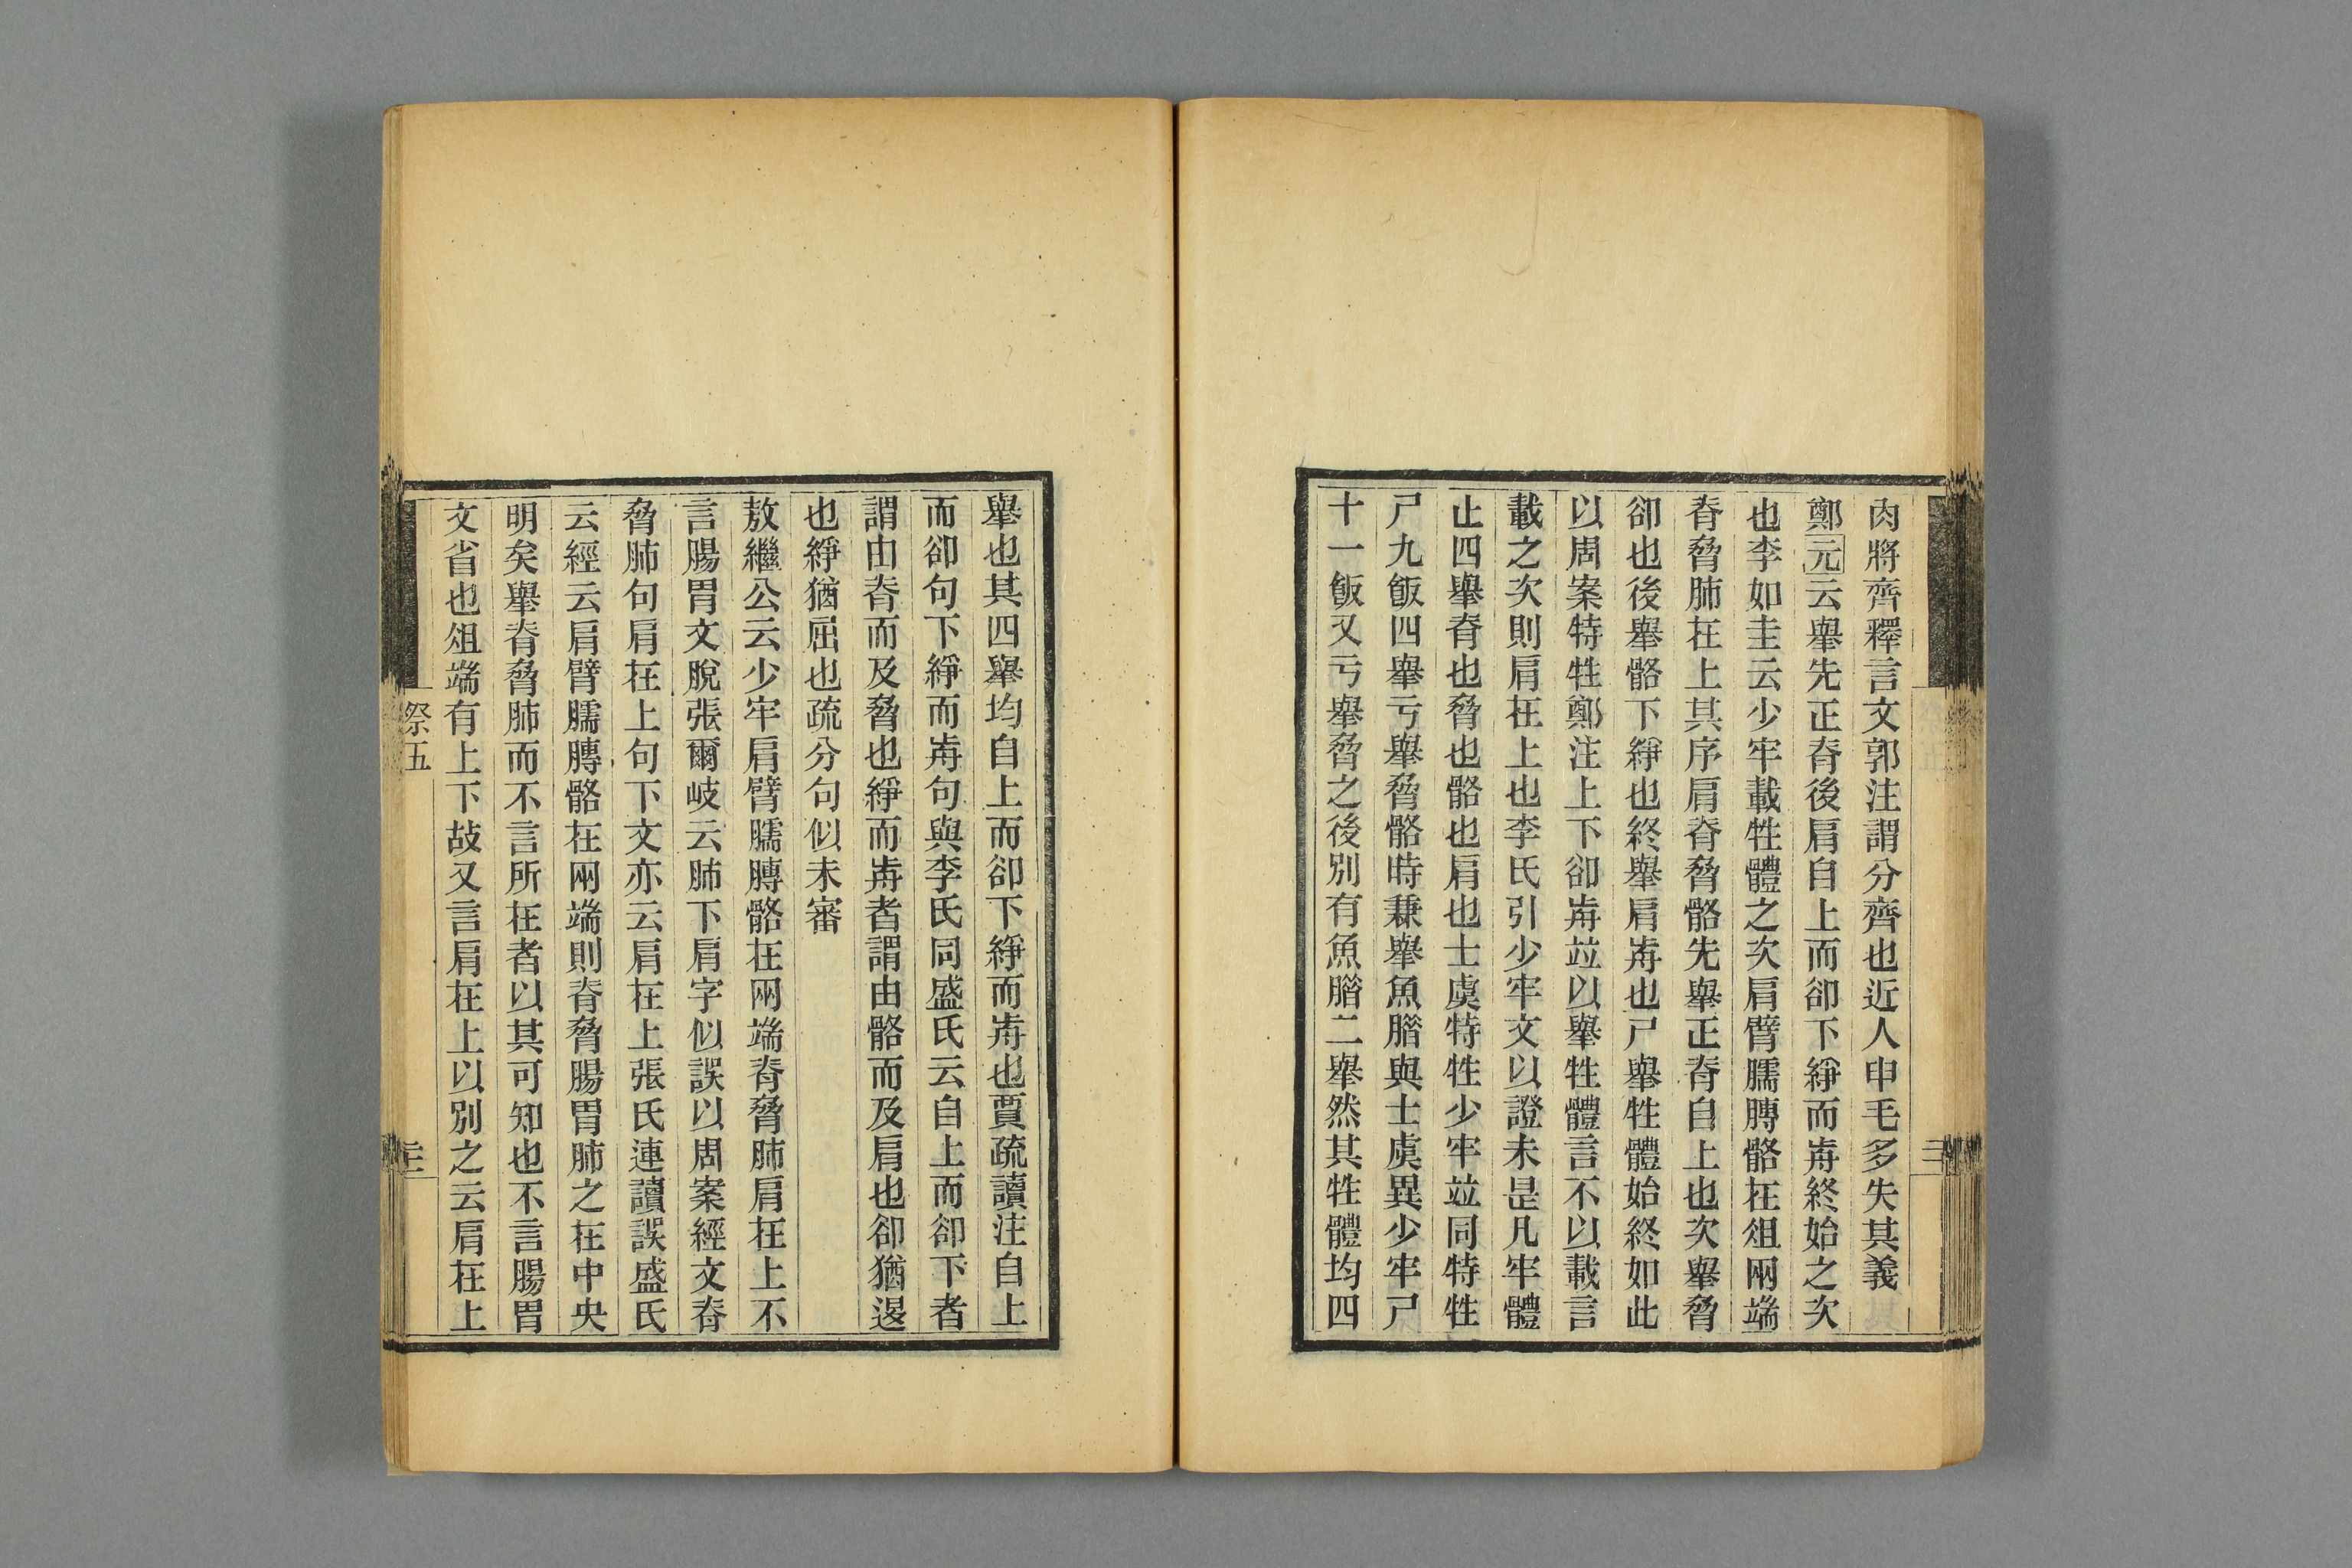 肉將齊釋言文郭注謂分齊也近人申毛多失其義
鄭元云舉先正脊後肩自上而卻下綪而歬終始之次
也李如圭云少牢載牲體之次肩臂臑膊骼在俎兩端
脊脅肺在上其序肩脊脅骼先舉正脊自上也次舉脅
卻也後舉骼下綪也終舉肩歬也尸舉牲體始終如此
以周案特牲鄭注上下卻歬竝以舉牲體言不以載言
載之次則肩在上也李氏引少牢文以證未是凡牢體
止四舉脊也脅也骼也肩也士虞特牲少牢竝同特牲
尸九飯四舉亏舉脅骼時兼舉魚腊與士虞異少牢尸
十一飯又亏舉脅之後別有魚腊二舉然其牲體均四
舉也其四舉均自上而卻下綪而歬也賈疏讀注自上
而卻句下綪而歬句與李氏同盛氏云自上而卻下者
謂由脊而及脅也綪而歬者謂由骼而及肩也卻猶退
也綪猶屈也疏分句似未審
敖繼公云少牢肩臂臑膊骼在兩端脊脅肺肩在上不
言腸胃文脫張爾岐云肺下肩字似誤以周案經文脊
脅肺句肩在上句下文亦云肩在上張氏連讀誤盛氏
云經云肩臂臑膊骼在兩端則脊脅腸胃肺之在中央
明矣舉脊脅肺而不言所在者以其可知也不言腸胃
文省也俎端有上下故又言肩在上以別之云肩在上
祭五
三